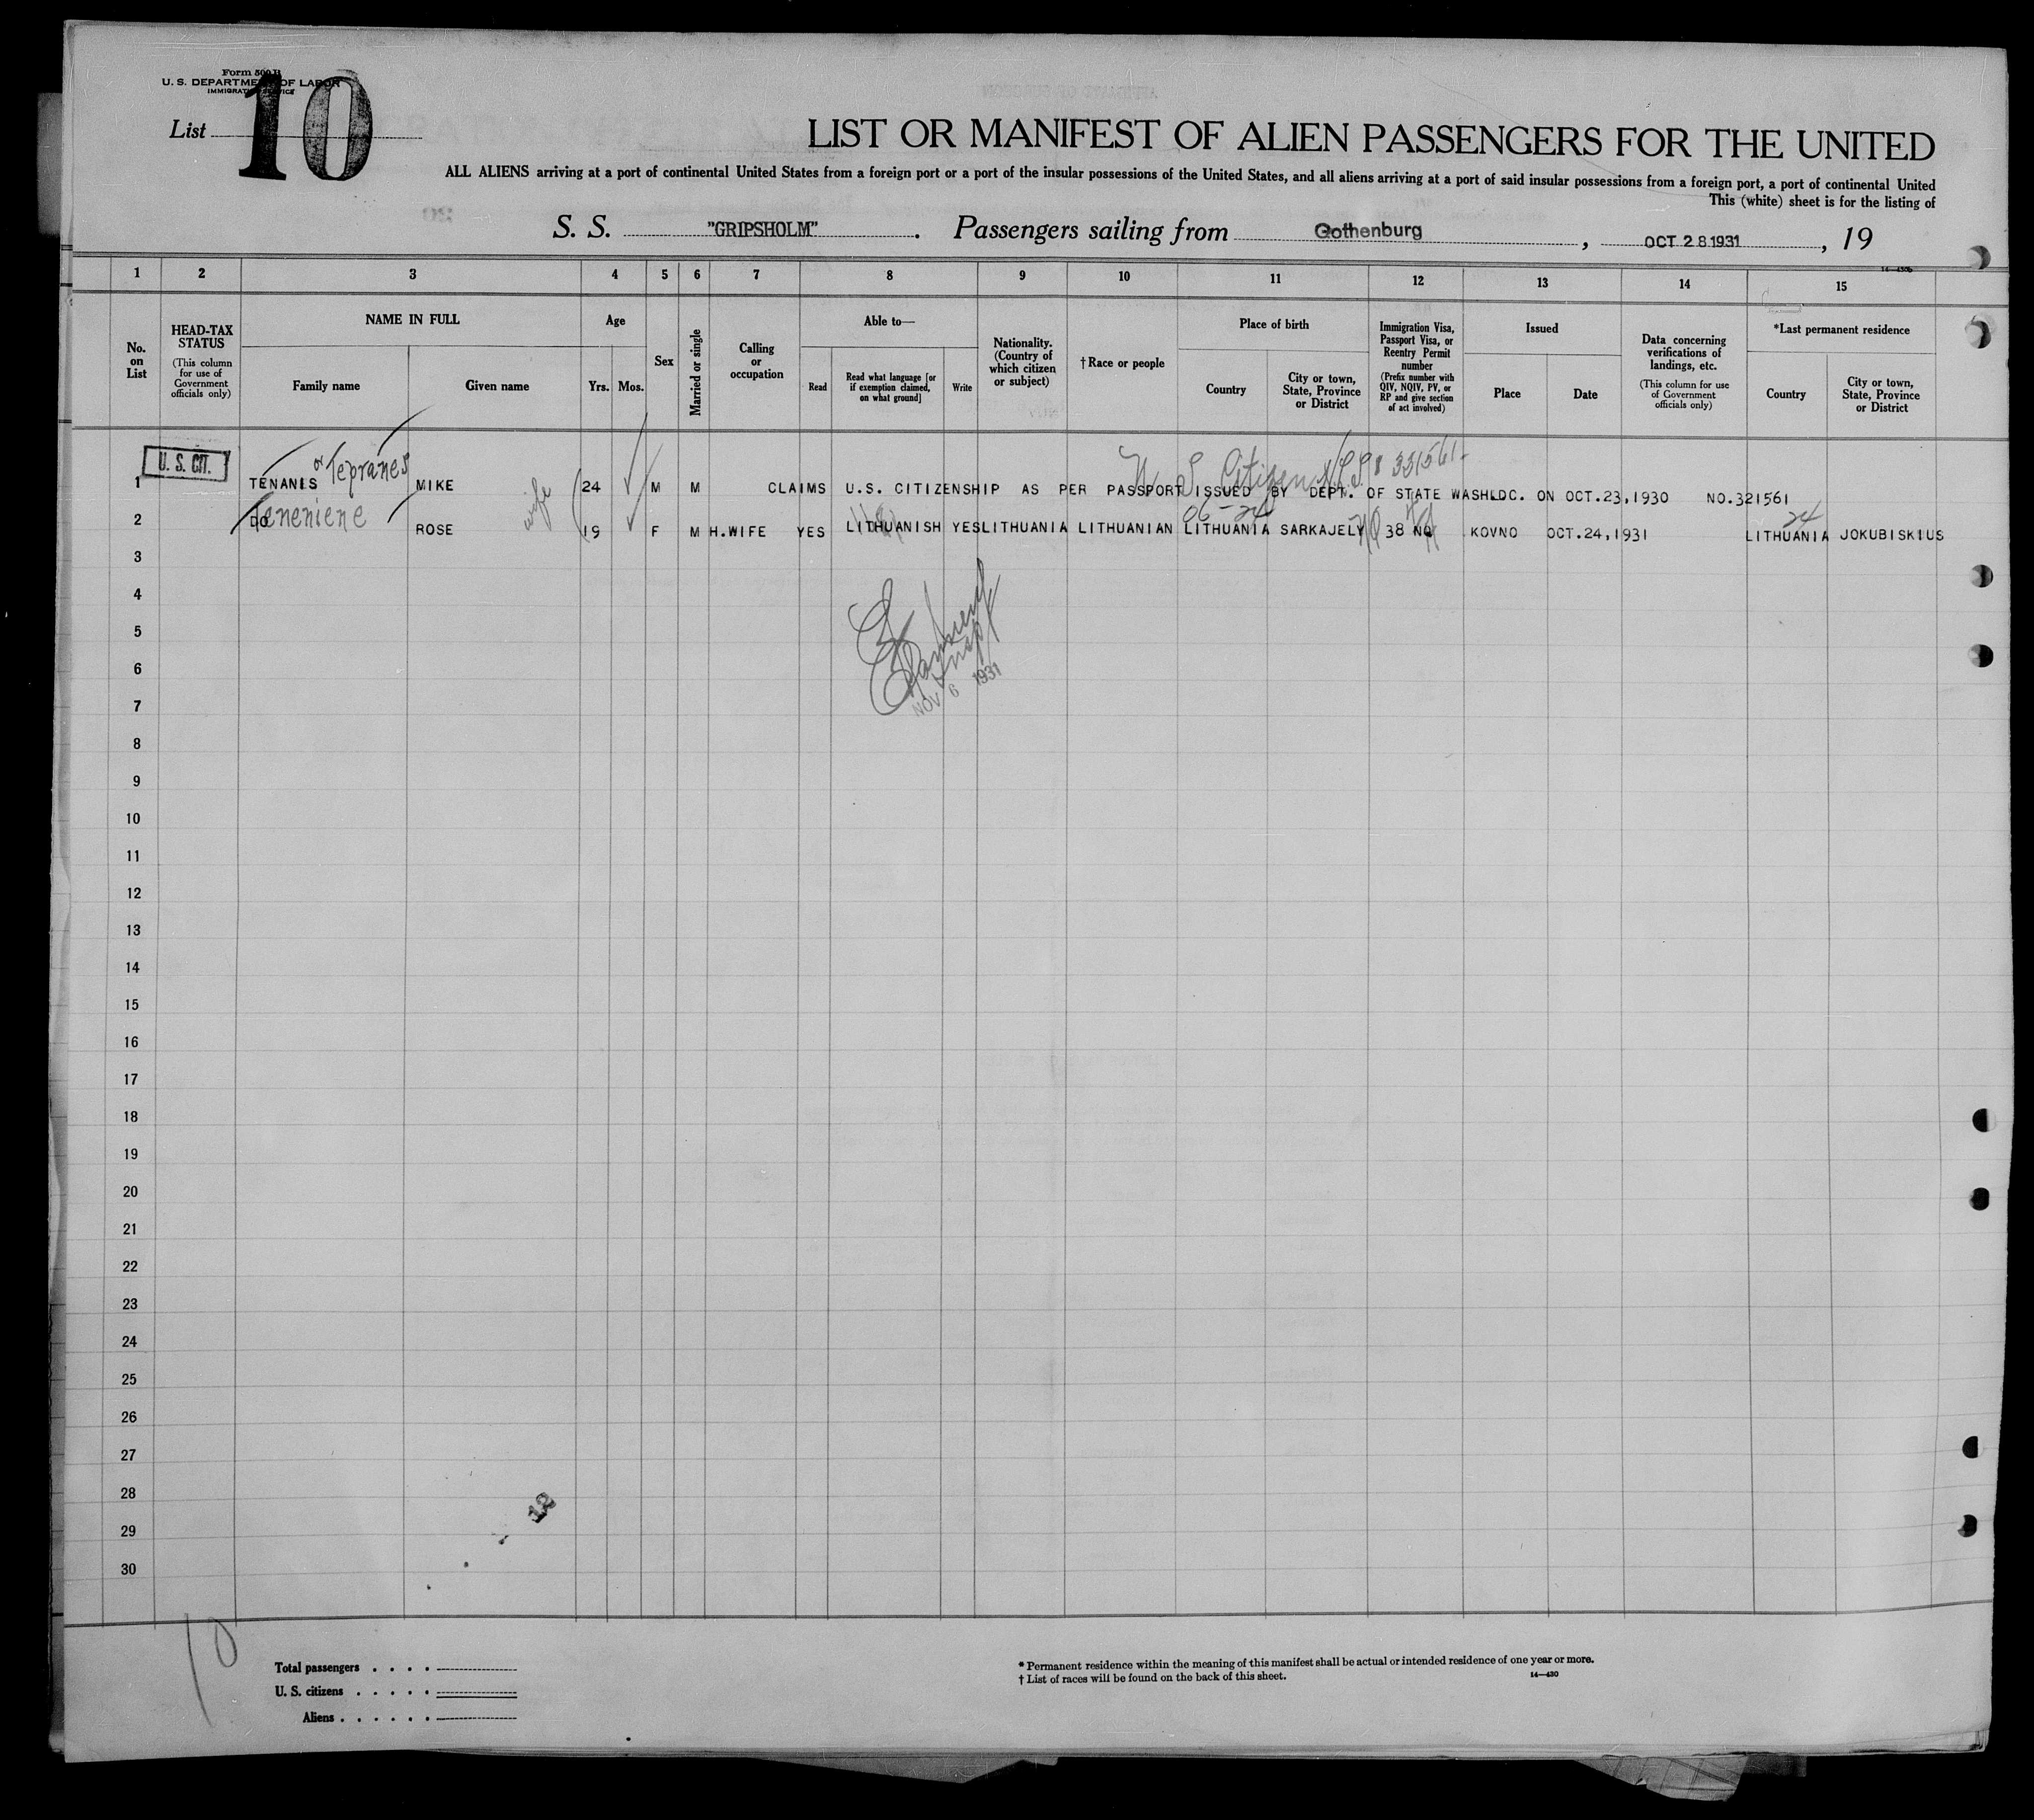 Form 500 B
U. S. DEPARTMENT OF LABOR
IMMIGRATION SERVICE
List 10
LIST OR MANIFEST OF ALIEN PASSENGERS FOR THE UNITED
ALL ALIENS arriving at a port of continental United States from a foreign port or a port of the insular possessions of the United States, and all aliens arriving at a port of said insular possessions from a foreign port, a port of continental United
This (white) sheet is for the listing of
S. S. "GRIPSHOLM". Passengers sailing from Gothenburg, OCT 28 1931, 19
1 2 3 4 5 6 7 8 9 10 11 12 13 14 15
No. on List
HEAD-TAX STATUS
(This column for use of Government officials only)
NAME IN FULL
Family name
Given name
Age
Yrs.
Mos.
Sex
Married or single
Calling or occupation
Able to—
Read
Read what language [or if exemption claimed, on what ground]
Write
Nationality. (Country of which citizen or subject)
† Race or people
Place of birth
Country
City or town, State, Province or District
Immigration Visa, Passport Visa, or Reentry Permit number
(Prefix number with QIV, NQIV, PV, or RP and give section of act involved)
Issued
Place
Date
Data concerning verifications of landings, etc.
(This column for use of Government officials only)
*Last permanent residence
Country
City or town, State, Province or District
U. S. CIT.
or Tepranes
U S Citizen
1 TENANIS MIKE 24 M M CLAIMS U.S. CITIZENSHIP AS PER PASSPORT ISSUED BY DEPT. OF STATE WASHLDC. ON OCT.23,1930 NO.321561
Teneniene
wife
06-24
24
2 DO ROSE 19 F M H.WIFE YES LITHUANISH YES LITHUANIA LITHUANIAN LITHUANIA SARKAJELY 38 NQ KOVNO OCT.24,1931 LITHUANIA JOKUBISKIUS
3
4
5
6
7
NOV 6 1931
8
9
10
11
12
13
14
15
16
17
18
19
20
21
22
23
24
25
26
27
28
29
30
10
Total passengers
U. S. citizens
Aliens
* Permanent residence within the meaning of this manifest shall be actual or intended residence of one year or more.
† List of races will be found on the back of this sheet.
14—430